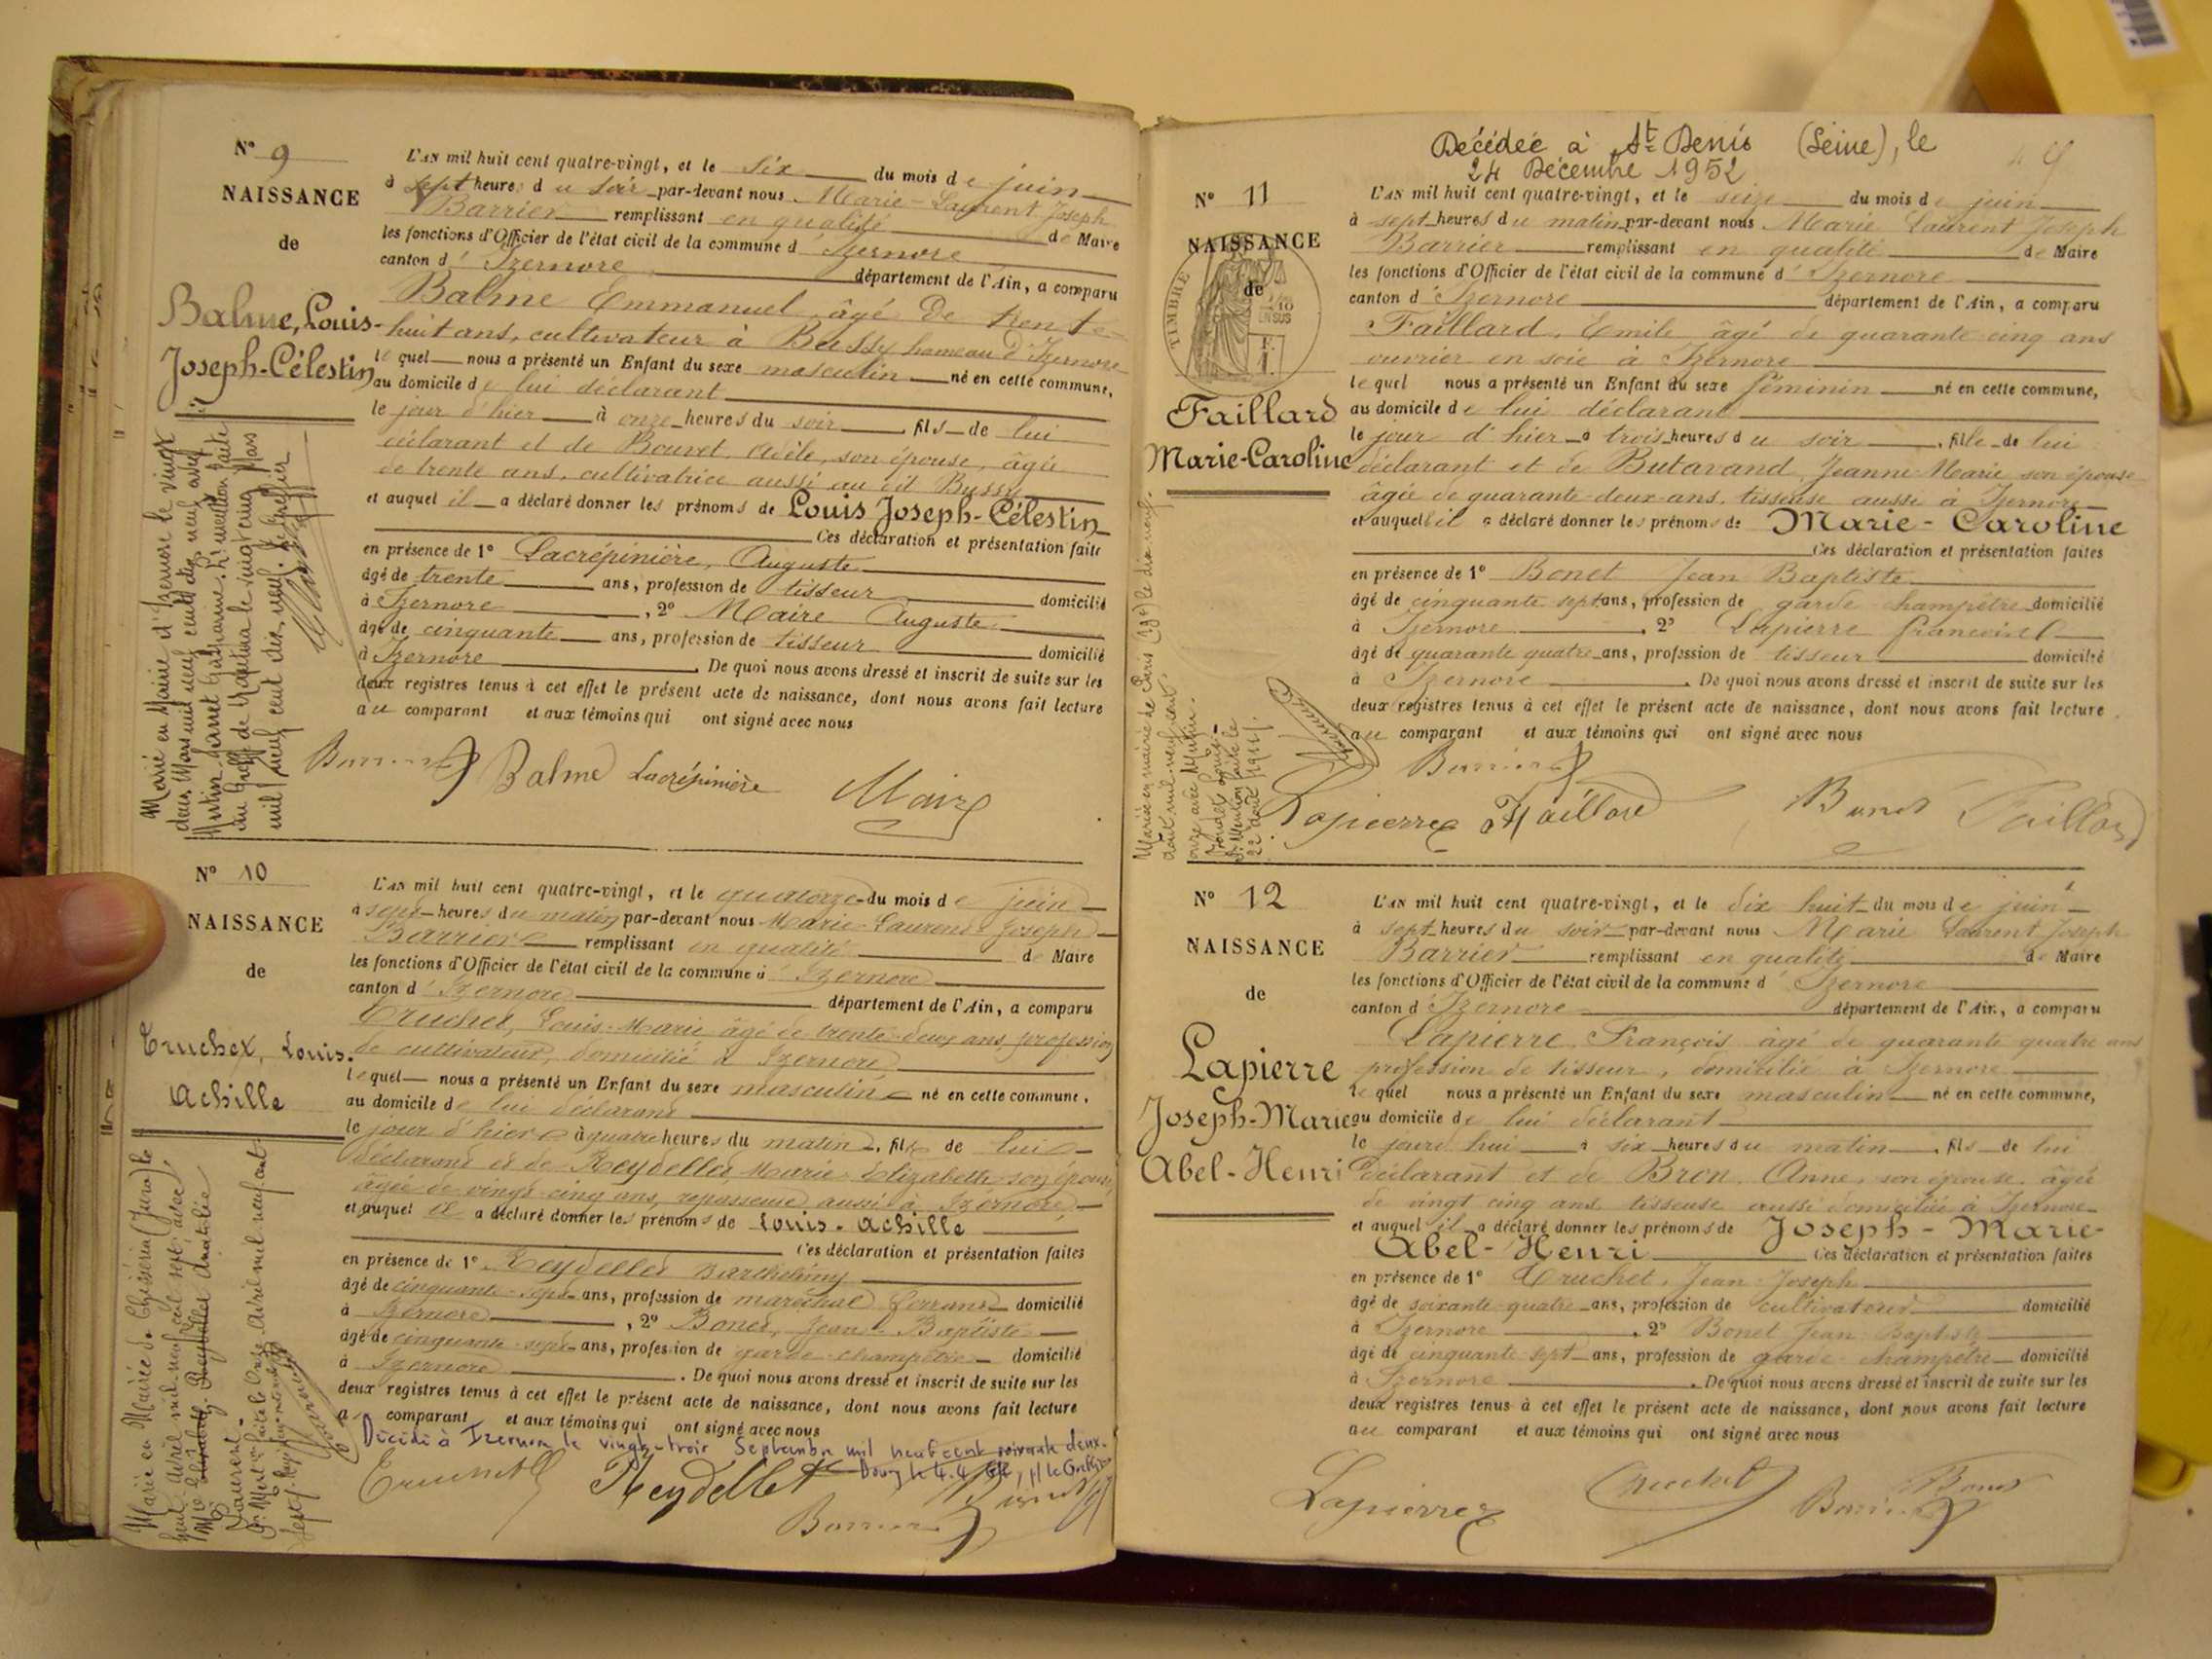 N° 9
NAISSANCE
de
Balme, Louis-
Joseph-Célestin
L'AN mil huit cent quatre-vingt, et le six du mois de juin
à sept heures du soir par-devant nous Marie-Laurent Joseph
Barrier remplissant en qualité de Maire
les fonctions d'Officier de l'état civil de la commune d'Izernore
canton d'Izernore département de l'Ain, a comparu
Balme Emmanuel, âgé de trente-
huit ans, cultivateur à Bussy hameau d'Izernore
lequel nous a présenté un Enfant du sexe masculin né en cette commune,
au domicile de lui déclarant
le jour d'hier à onze heures du soir, fils de lui
déclarant et de Bouvet, Adèle, son épouse, âgée
de trente ans, cultivatrice aussi au dit Bussy
et auquel il a déclaré donner les prénoms de Louis Joseph-Célestin
Ces déclaration et présentation faites
en présence de 1° Lacrépinière, Auguste
âgé de trente ans, profession de tisseur domicilié
à Izernore, 2° Maire Auguste
âgé de cinquante ans, profession de tisseur domicilié
à Izernore. De quoi nous avons dressé et inscrit de suite sur les
deux registres tenus à cet effet le présent acte de naissance, dont nous avons fait lecture
au comparant et aux témoins qui ont signé avec nous
Barrier Balme Lacrépinière Maire
Marié en Mairie d'Izernore le vingt
deux Mars mil neuf cent dix neuf avec
au Greffe de Nantua le vingt cinq Mars
mil neuf cent dix neuf. Le Greffier
N° 10
NAISSANCE
de
Truchet, Louis-
Achille
L'AN mil huit cent quatre-vingt, et le quatorze du mois de juin
à sept heures du matin par-devant nous Marie-Laurent Joseph
Barrier remplissant en qualité de Maire
les fonctions d'Officier de l'état civil de la commune d'Izernore
canton d'Izernore département de l'Ain, a comparu
Truchet, Louis-Marie âgé de trente-deux ans, profession
de cultivateur, domicilié à Izernore
lequel nous a présenté un Enfant du sexe masculin né en cette commune,
au domicile de lui déclarant
le jour d'hier à quatre heures du matin, fils de lui
déclarant et de Reydellet, Marie-Elizabeth son épouse,
âgée de vingt-cinq ans, repasseuse aussi à Izernore,
et auquel il a déclaré donner les prénoms de Louis-Achille
Ces déclaration et présentation faites
en présence de 1° Reydellet Barthélémy
âgé de cinquante-sept ans, profession de maréchal ferrant domicilié
à Izernore, 2° Bonet, Jean-Baptiste
âgé de cinquante-sept ans, profession de garde-champêtre domicilié
à Izernore. De quoi nous avons dressé et inscrit de suite sur les
deux registres tenus à cet effet le présent acte de naissance, dont nous avons fait lecture
au comparant et aux témoins qui ont signé avec nous
Décédé à Izernore le vingt-trois Septembre mil neuf cent soixante deux.
Truchet Reydellet Bonet
Barrier
Marié en Mairie de (Jura) le
huit avril mil neuf cent sept avec
Reydellet
Laurent.
avril mil neuf cent
Décédée à St Denis (Seine), le
24 Décembre 1952
N° 11
NAISSANCE
de
TIMBRE
Faillard
Marie-Caroline
L'AN mil huit cent quatre-vingt, et le seize du mois de juin
à sept heures du matin par-devant nous Marie Laurent Joseph
Barrier remplissant en qualité de Maire
les fonctions d'Officier de l'état civil de la commune d'Izernore
canton d'Izernore département de l'Ain, a comparu
Faillard, Emile âgé de quarante-cinq ans
ouvrier en soie à Izernore
lequel nous a présenté un Enfant du sexe féminin né en cette commune,
au domicile de lui déclarant
le jour d'hier à trois heures du soir, fille de lui
déclarant et de Butavand, Jeanne-Marie son épouse
âgée de quarante-deux ans, tisseuse aussi à Izernore
et auquel il a déclaré donner les prénoms de Marie-Caroline
Ces déclaration et présentation faites
en présence de 1° Bonet Jean Baptiste
âgé de cinquante sept ans, profession de garde champêtre domicilié
à Izernore, 2° Lapierre François
âgé de quarante quatre ans, profession de tisseur domicilié
à Izernore. De quoi nous avons dressé et inscrit de suite sur les
deux registres tenus à cet effet le présent acte de naissance, dont nous avons fait lecture
au comparant et aux témoins qui ont signé avec nous
Barrier
Lapierre Faillard Bonet Faillard
Mariée en mairie de Paris le dix neuf
août mil neuf cent
onze avec
22 août 1911.
N° 12
NAISSANCE
de
Lapierre
Joseph-Marie
Abel-Henri
L'AN mil huit cent quatre-vingt, et le dix huit du mois de juin
à sept heures du soir par-devant nous Marie Laurent Joseph
Barrier remplissant en qualité de Maire
les fonctions d'Officier de l'état civil de la commune d'Izernore
canton d'Izernore département de l'Ain, a comparu
Lapierre, François âgé de quarante quatre ans
profession de tisseur, domicilié à Izernore
lequel nous a présenté un Enfant du sexe masculin né en cette commune,
au domicile de lui déclarant
le jourd'hui à six heures du matin, fils de lui
déclarant et de Bron, Anne, son épouse, âgée
de vingt cinq ans tisseuse aussi domiciliée à Izernore
et auquel il a déclaré donner les prénoms de Joseph-Marie-
Abel-Henri Ces déclaration et présentation faites
en présence de 1° Truchet, Jean-Joseph
âgé de soixante-quatre ans, profession de cultivateur domicilié
à Izernore, 2° Bonet Jean-Baptiste
âgé de cinquante-sept ans, profession de garde-champêtre domicilié
à Izernore. De quoi nous avons dressé et inscrit de suite sur les
deux registres tenus à cet effet le présent acte de naissance, dont nous avons fait lecture
au comparant et aux témoins qui ont signé avec nous
Lapierre Truchet Barrier Bonet